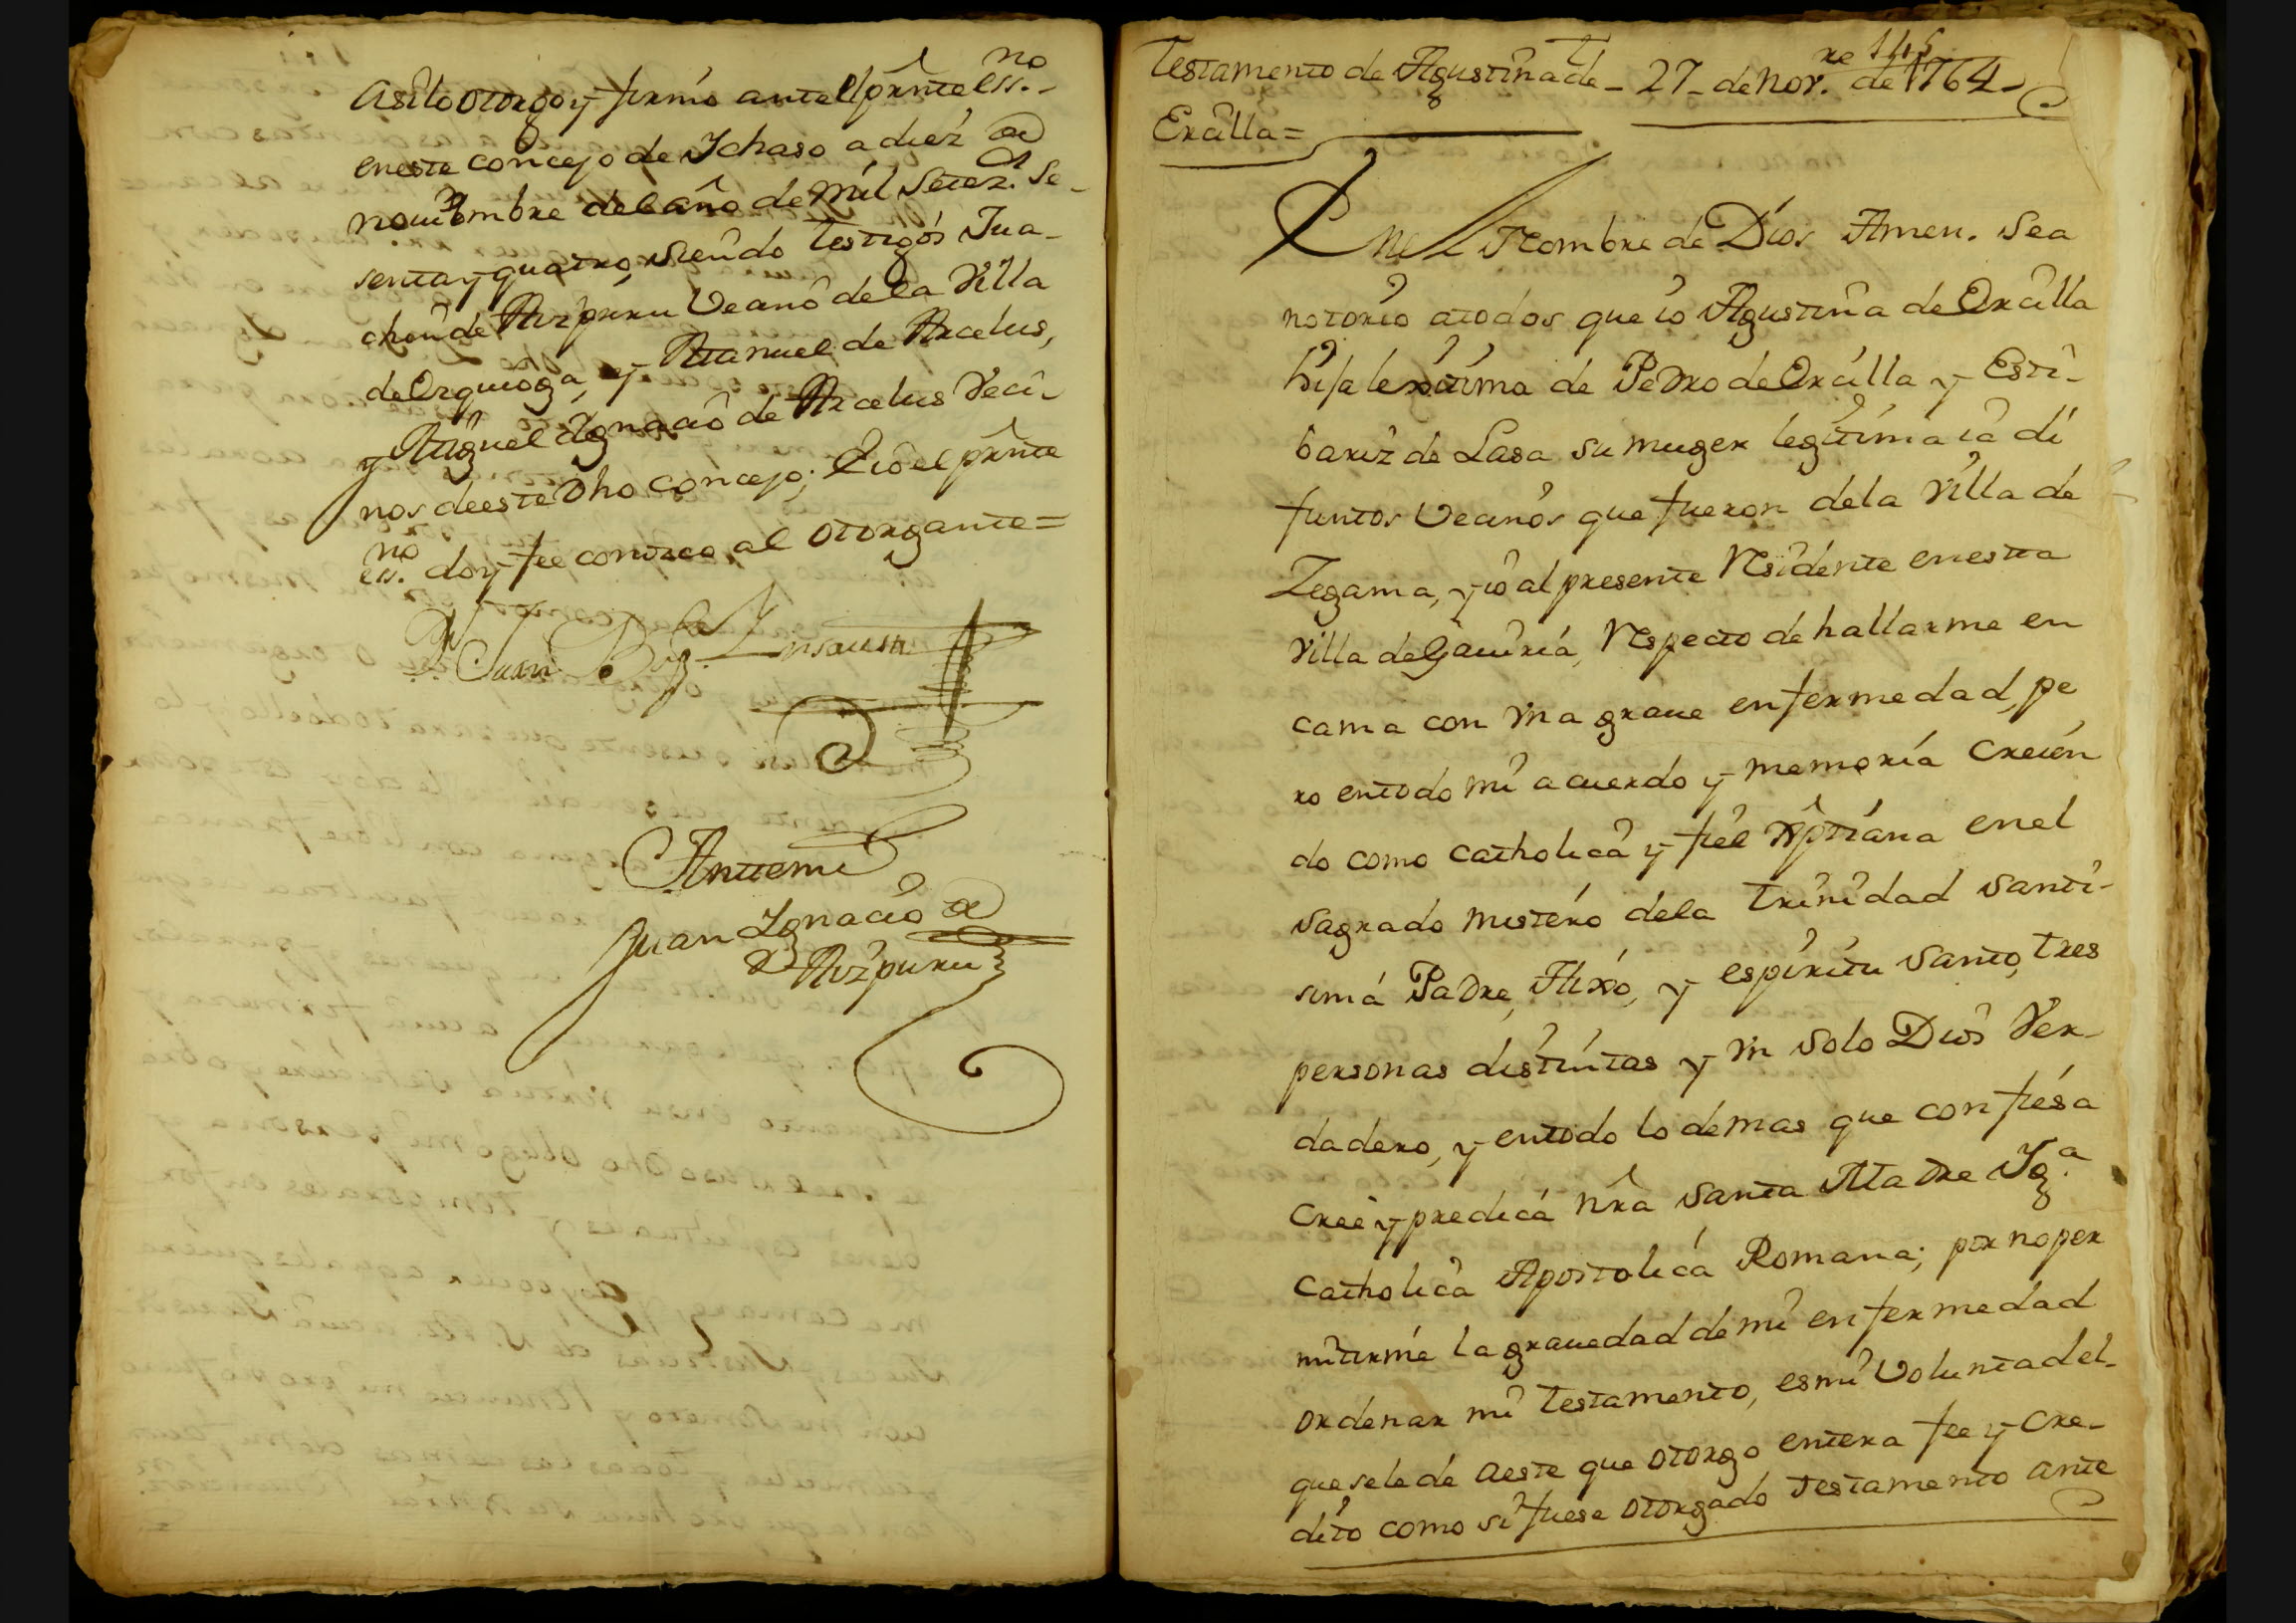 asilo otorgo y firmo ante el pnte ess.no
en este concejo de Ichaso a diez de
noviembre del año de mil setez.s se-
senta y quatro, siendo testigos Jua-
chin de Aizpuru Vecino de la Villa
de Ezquioga, y Manuel de Arcelus,
y Miguel Ignacio de Arcelus Veci-
nos de este dho concejo; E io el pnte
ess.no doy fee conozco al otorgante=
Juan Insausti
Antemi
Juan Ignacio de
Aizpuru
145
Testamento de Agustina de - 27- de Nov.re de 1764-
Orailla=
En el Nombre de Dios Amen. Sea
notorio atodos que io Agustina de Orailla
hija lexitima de Pedro de Orailla y Esti-
bariz de Lasa su muger legitima ia di
funtos Vecinos que fueron dela Villa de
Zegama, y io al presente Residente en esta
Villa de Gauiria, Respecto de hallarme en
cama con Vna graue enfermedad, pe
ro entodo mi acuerdo y memoria creien
do como catholica y fiel Xptiana en el
sagrado misterio dela Trinidad santi-
sima Padre, Hixo, y espiritu santo, tres
personas distintas y Vn solo Dios Ver-
dadero, y entodo lo demas que confiesa
cree y predica nra santa Madre Ig.a
Catholica Apostolica Romana; por no per
mitirme la grauedad de mi enfermedad
ordenar mi testamento, es mi Voluntad el-
que sele dé aeste que otorgo entera fee y cre-
dito como si fuese otorgado testamento ante